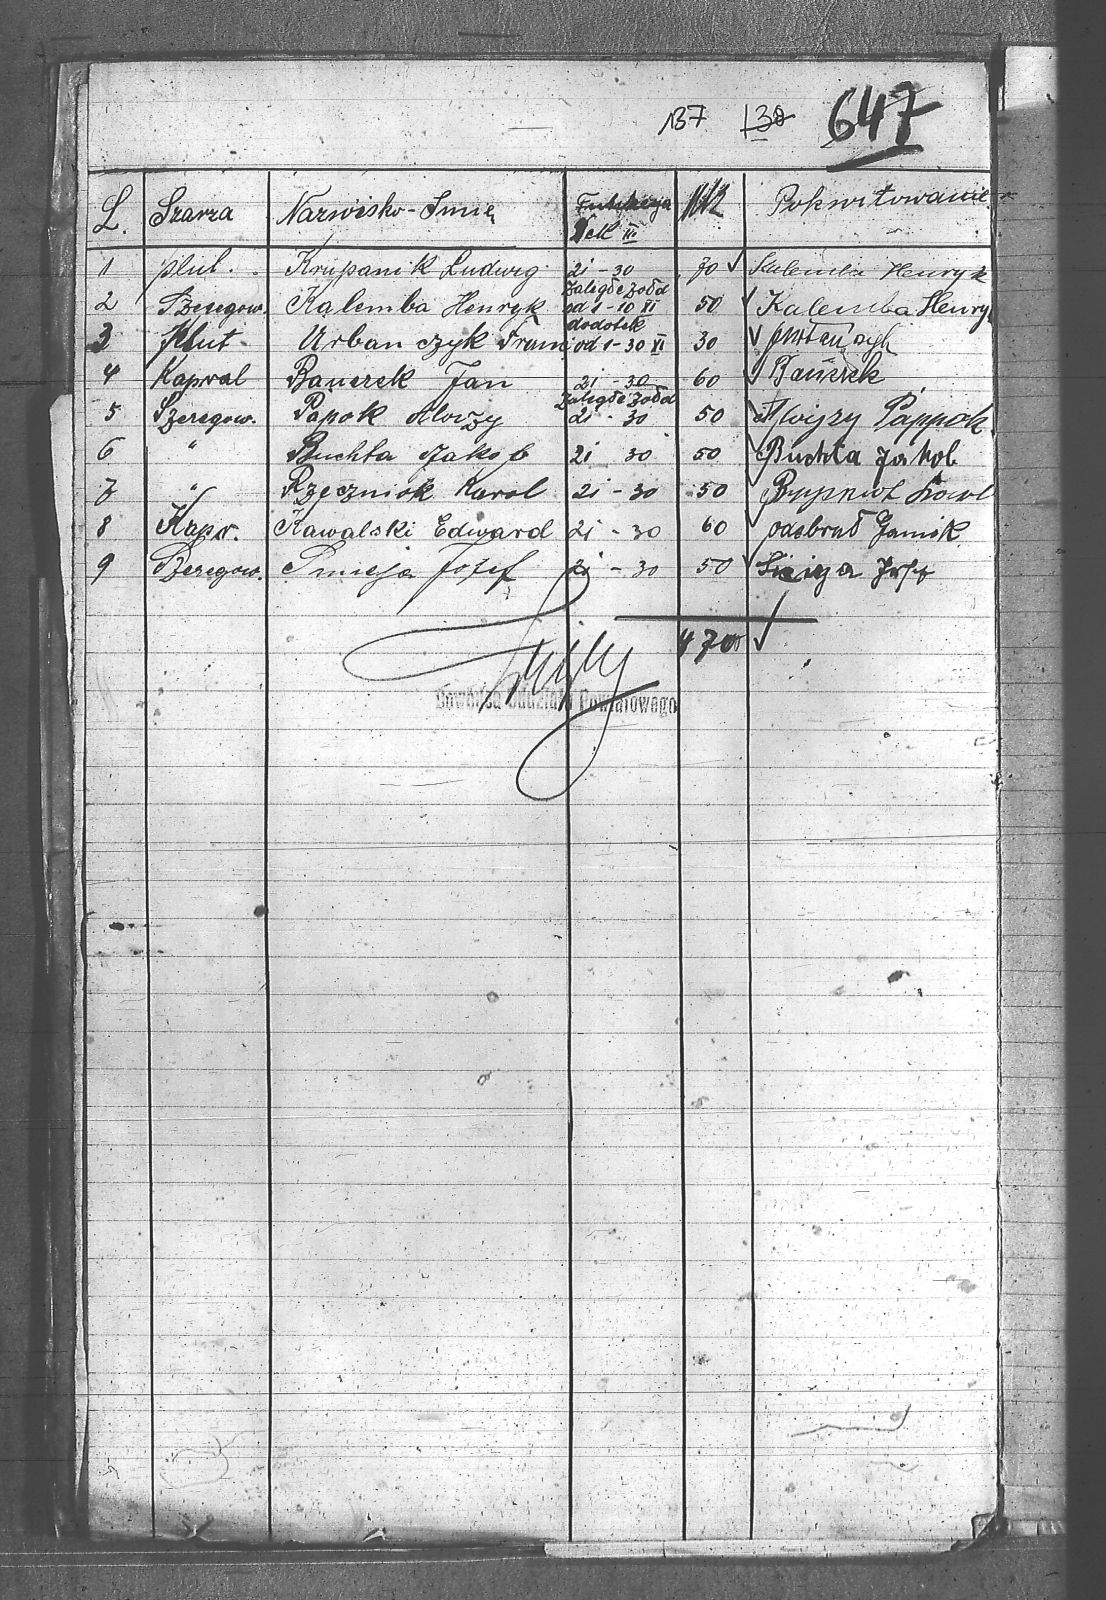 137 130 647
L. Szarża Nazwisko-Imię Funkcja Dek III Mk Pokwitowanie
1 plut. Krupanik Ludwig 21-30 70 Kalemba Henryk
2 Szeregow. Kalemba Henryk zaległe żołd od 1-10 VI 50 Kalemba Henry
3 Plut. Urbanczyk Franc dodatek od 1-30 VI 30
4 Kapral Bauerek Jan 21-30 60 Bauerek
5 Szeregow. Papok Alozy zaległe żołd 21-30 50 Alojzy Pappok
6 " Buchta Jakob 21 30 50 Buchta Jakob
7 " Rzeczniok Karol 21-30 50
8 Kapr. Kawalski Edward 21-30 60 odebrał Janik
9 Szeregow. Smieja Jozef 21-30 50
470
Dowódca Oddziału Powiatowego